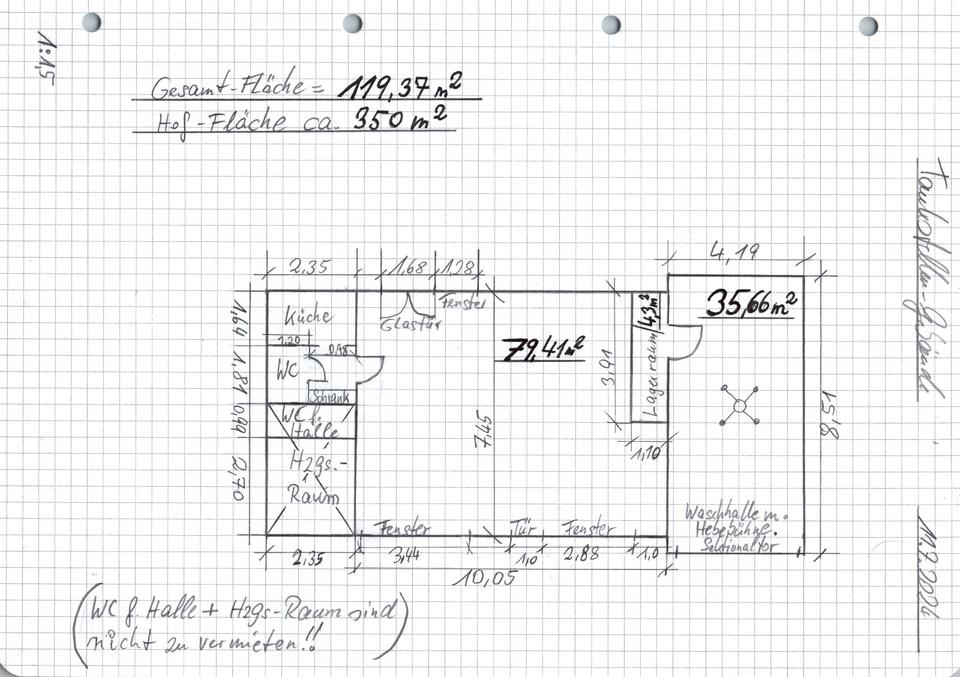 1:1,5
Gesamt-Fläche = 119,37 m²
Hof-Fläche ca. 350 m²
Tankstellen-Gebäude
11.7.2024
2,35
1,68
1,28
4,19
Küche
Glastür
Fenster
79,41 m²
Lagerraum 4,3 m²
35,66 m²
1,64
1,81
0,99
2,70
1,20
0,98
WC
Schrank
WC f.
Halle
Hzgs.-
Raum
7,45
3,91
1,10
8,51
Waschhalle m.
Hebebühne.
Sektionaltor
Fenster
Tür
Fenster
2,35
3,44
1,0
2,88
1,0
10,05
(WC f. Halle + Hzgs-Raum sind
nicht zu vermieten!!)